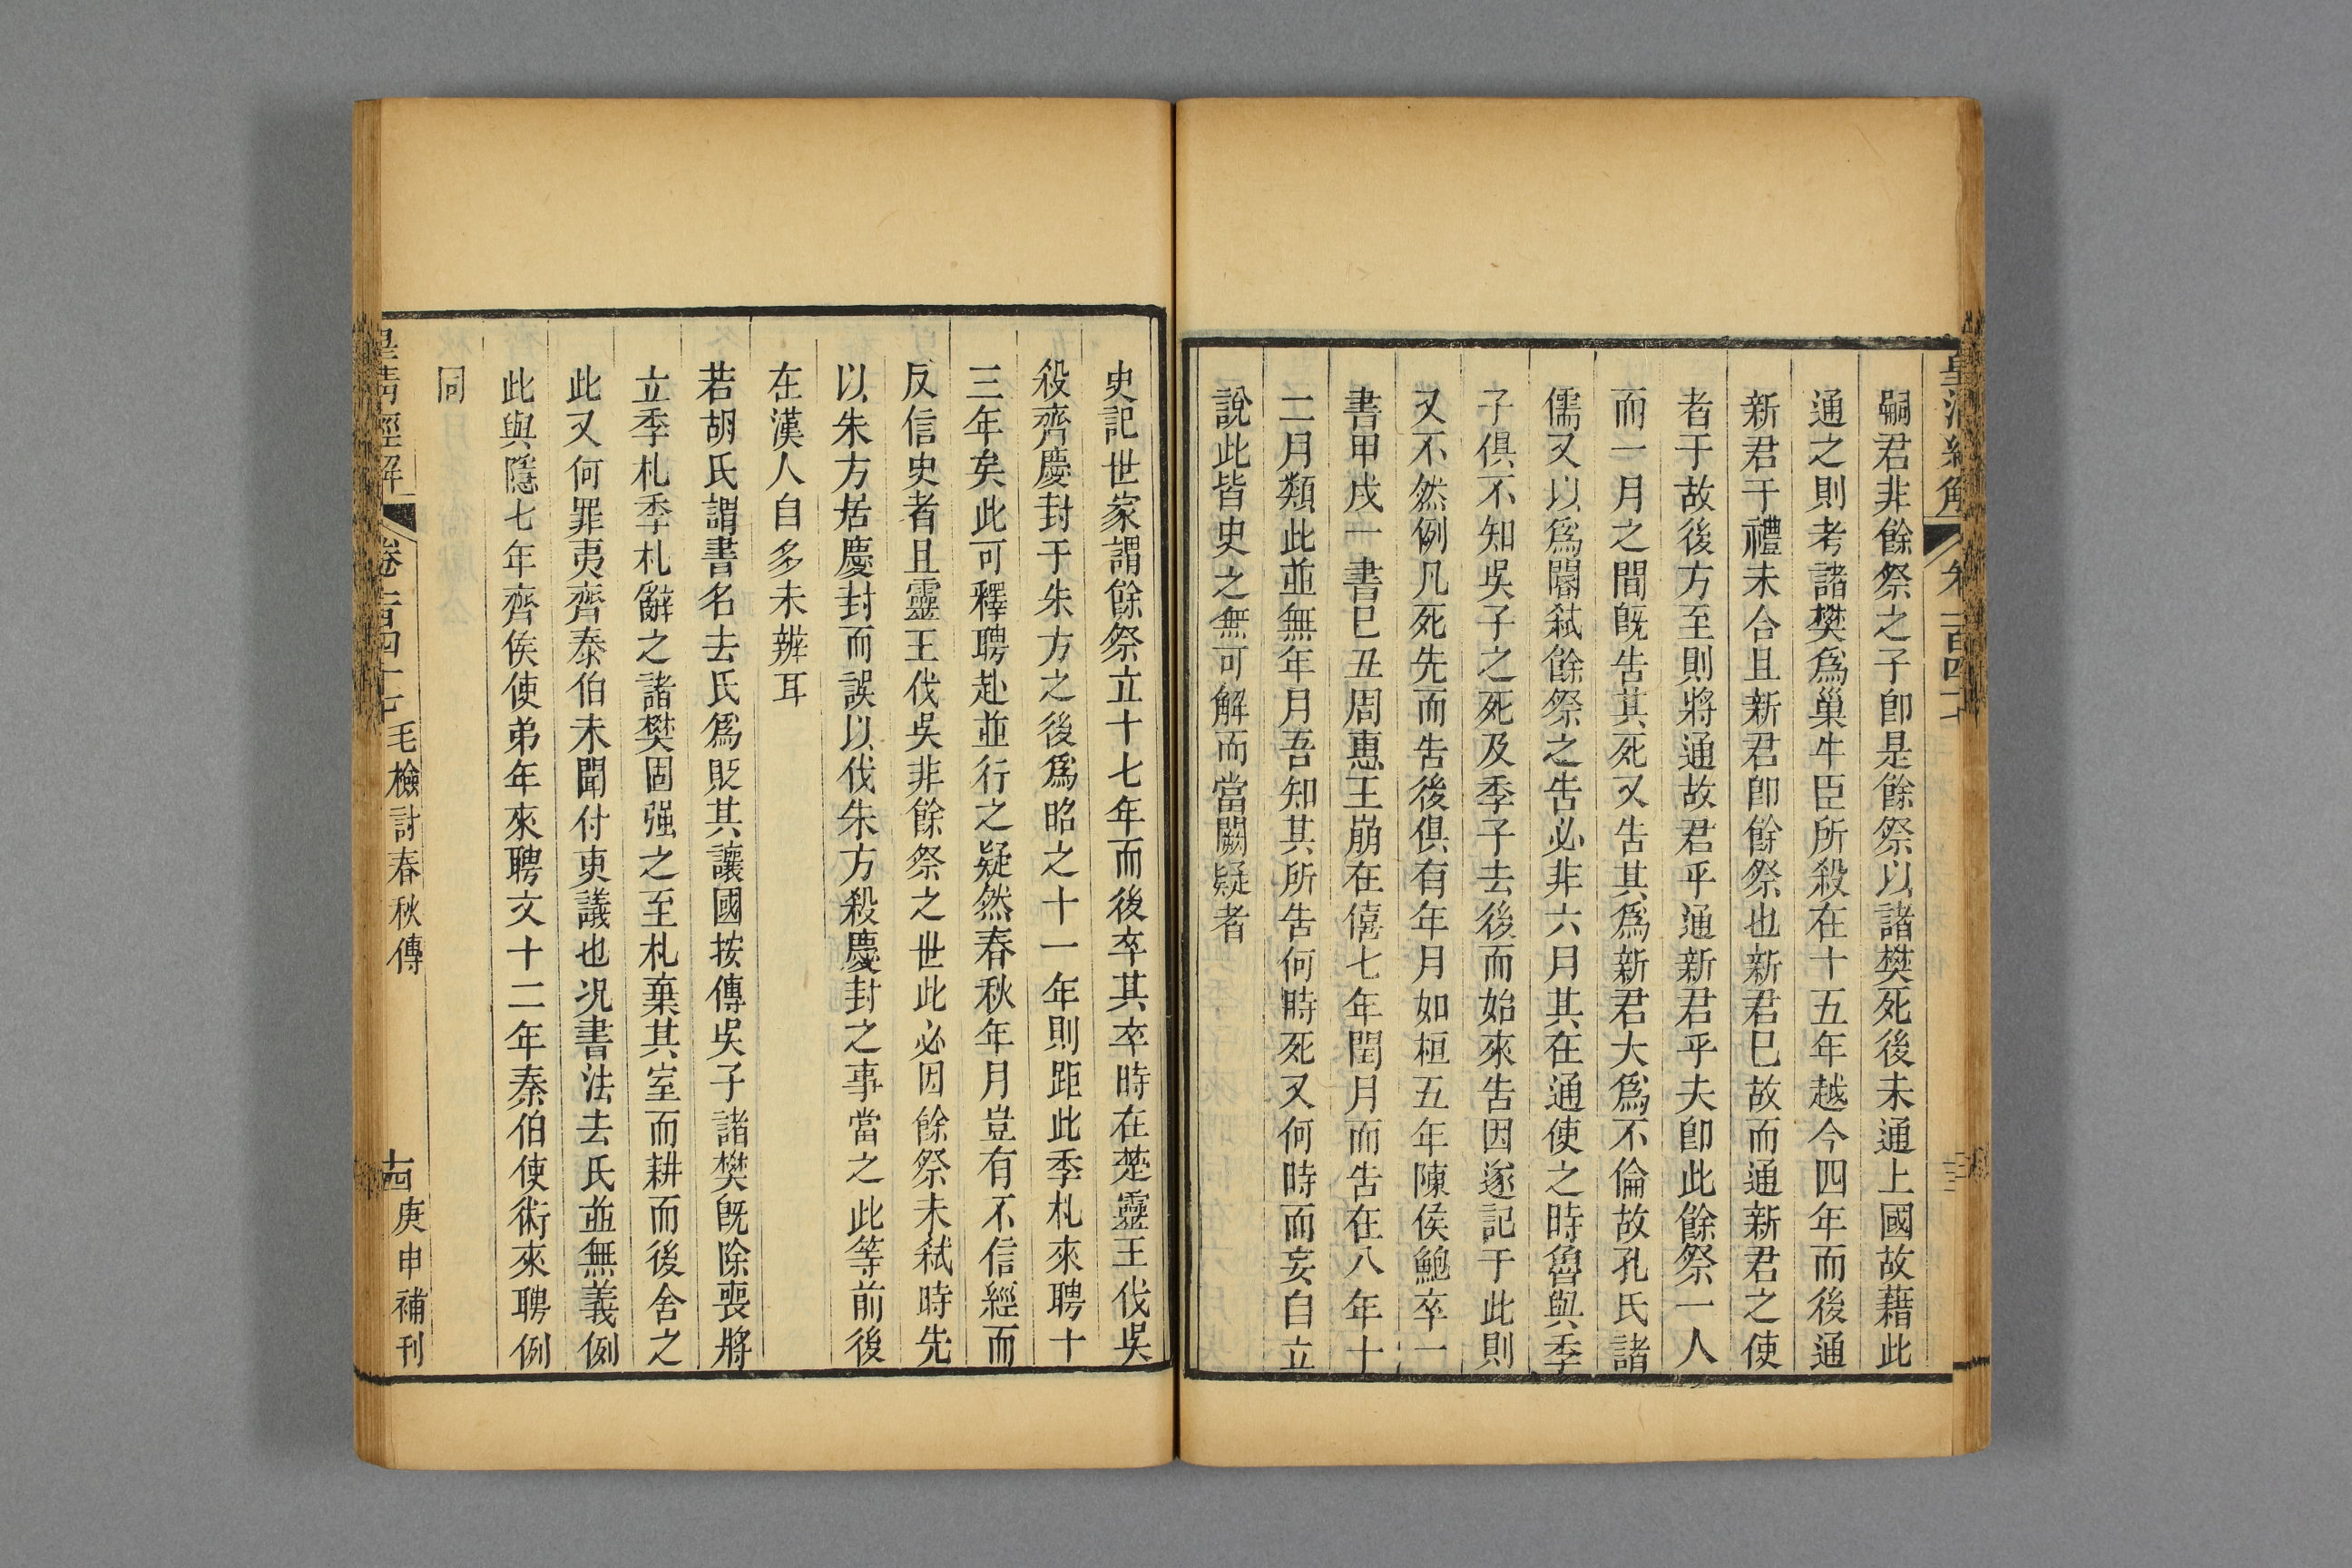 嗣君非餘祭之子卽是餘祭以諸樊死後未通上國故藉此
通之則考諸樊爲巢牛臣所殺在十五年越今四年而後通
新君于禮未合且新君卽餘祭也新君巳故而通新君之使
者于故後方至則將通故君乎通新君乎夫卽此餘祭一人
而一月之間旣告其死又告其爲新君大爲不倫故孔氏諸
儒又以爲閽弒餘祭之告必非六月其在通使之時魯與季
子俱不知吳子之死及季子去後而始來告因逐記于此則
又不然例凡死先而告後俱有年月如桓五年陳侯鮑卒一
書甲戌一書巳丑周惠王崩在僖七年閏月而告在八年十
二月類此並無年月吾知其所告何時死又何時而妄自立
說此皆史之無可解而當闕疑者
史記世家謂餘祭立十七年而後卒其卒時在楚靈王伐吳
殺齊慶封于朱方之後爲昭之十一年則距此季札來聘十
三年矣此可釋聘赴並行之疑然春秋年月豈有不信經而
反信史者且靈王伐吳非餘祭之世此必因餘祭未弒時先
以朱方居慶封而誤以伐朱方殺慶封之事當之此等前後
在漢人自多未辨耳
若胡氏謂書名去氏爲貶其讓國按傳吳子諸樊旣除喪將
立季札季札辭之諸樊固强之至札棄其室而耕而後舍之
此又何罪夷齊泰伯未聞付吏議也况書法去氏並無義例
此與隱七年齊侯使弟年來聘文十二年秦伯使術來聘例
同
皇清經解 卷一百四十七 毛檢討春秋傳 古 庚申補刊